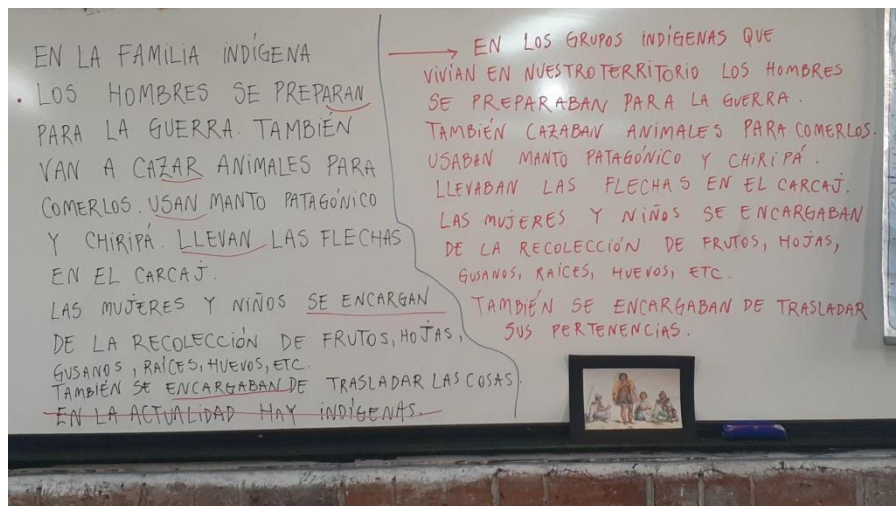 EN LA FAMILIA INDÍGENA
LOS HOMBRES SE PREPARAN
PARA LA GUERRA. TAMBIÉN
VAN A CAZAR ANIMALES PARA
COMERLOS. USAN MANTO PATAGÓNICO
Y CHIRIPÁ. LLEVAN LAS FLECHAS
EN EL CARCAJ.
LAS MUJERES Y NIÑOS SE ENCARGAN
DE LA RECOLECCIÓN DE FRUTOS, HOJAS,
GUSANOS, RAÍCES, HUEVOS, ETC.
TAMBIÉN SE ENCARGABAN DE TRASLADAR LAS COSAS.
EN LA ACTUALIDAD HAY INDÍGENAS.
EN LOS GRUPOS INDÍGENAS QUE
VIVÍAN EN NUESTRO TERRITORIO LOS HOMBRES
SE PREPARABAN PARA LA GUERRA.
TAMBIÉN CAZABAN ANIMALES PARA COMERLOS.
USABAN MANTO PATAGÓNICO Y CHIRIPÁ.
LLEVABAN LAS FLECHAS EN EL CARCAJ.
LAS MUJERES Y NIÑOS SE ENCARGABAN
DE LA RECOLECCIÓN DE FRUTOS, HOJAS,
GUSANOS, RAÍCES, HUEVOS, ETC.
TAMBIÉN SE ENCARGABAN DE TRASLADAR
SUS PERTENENCIAS.